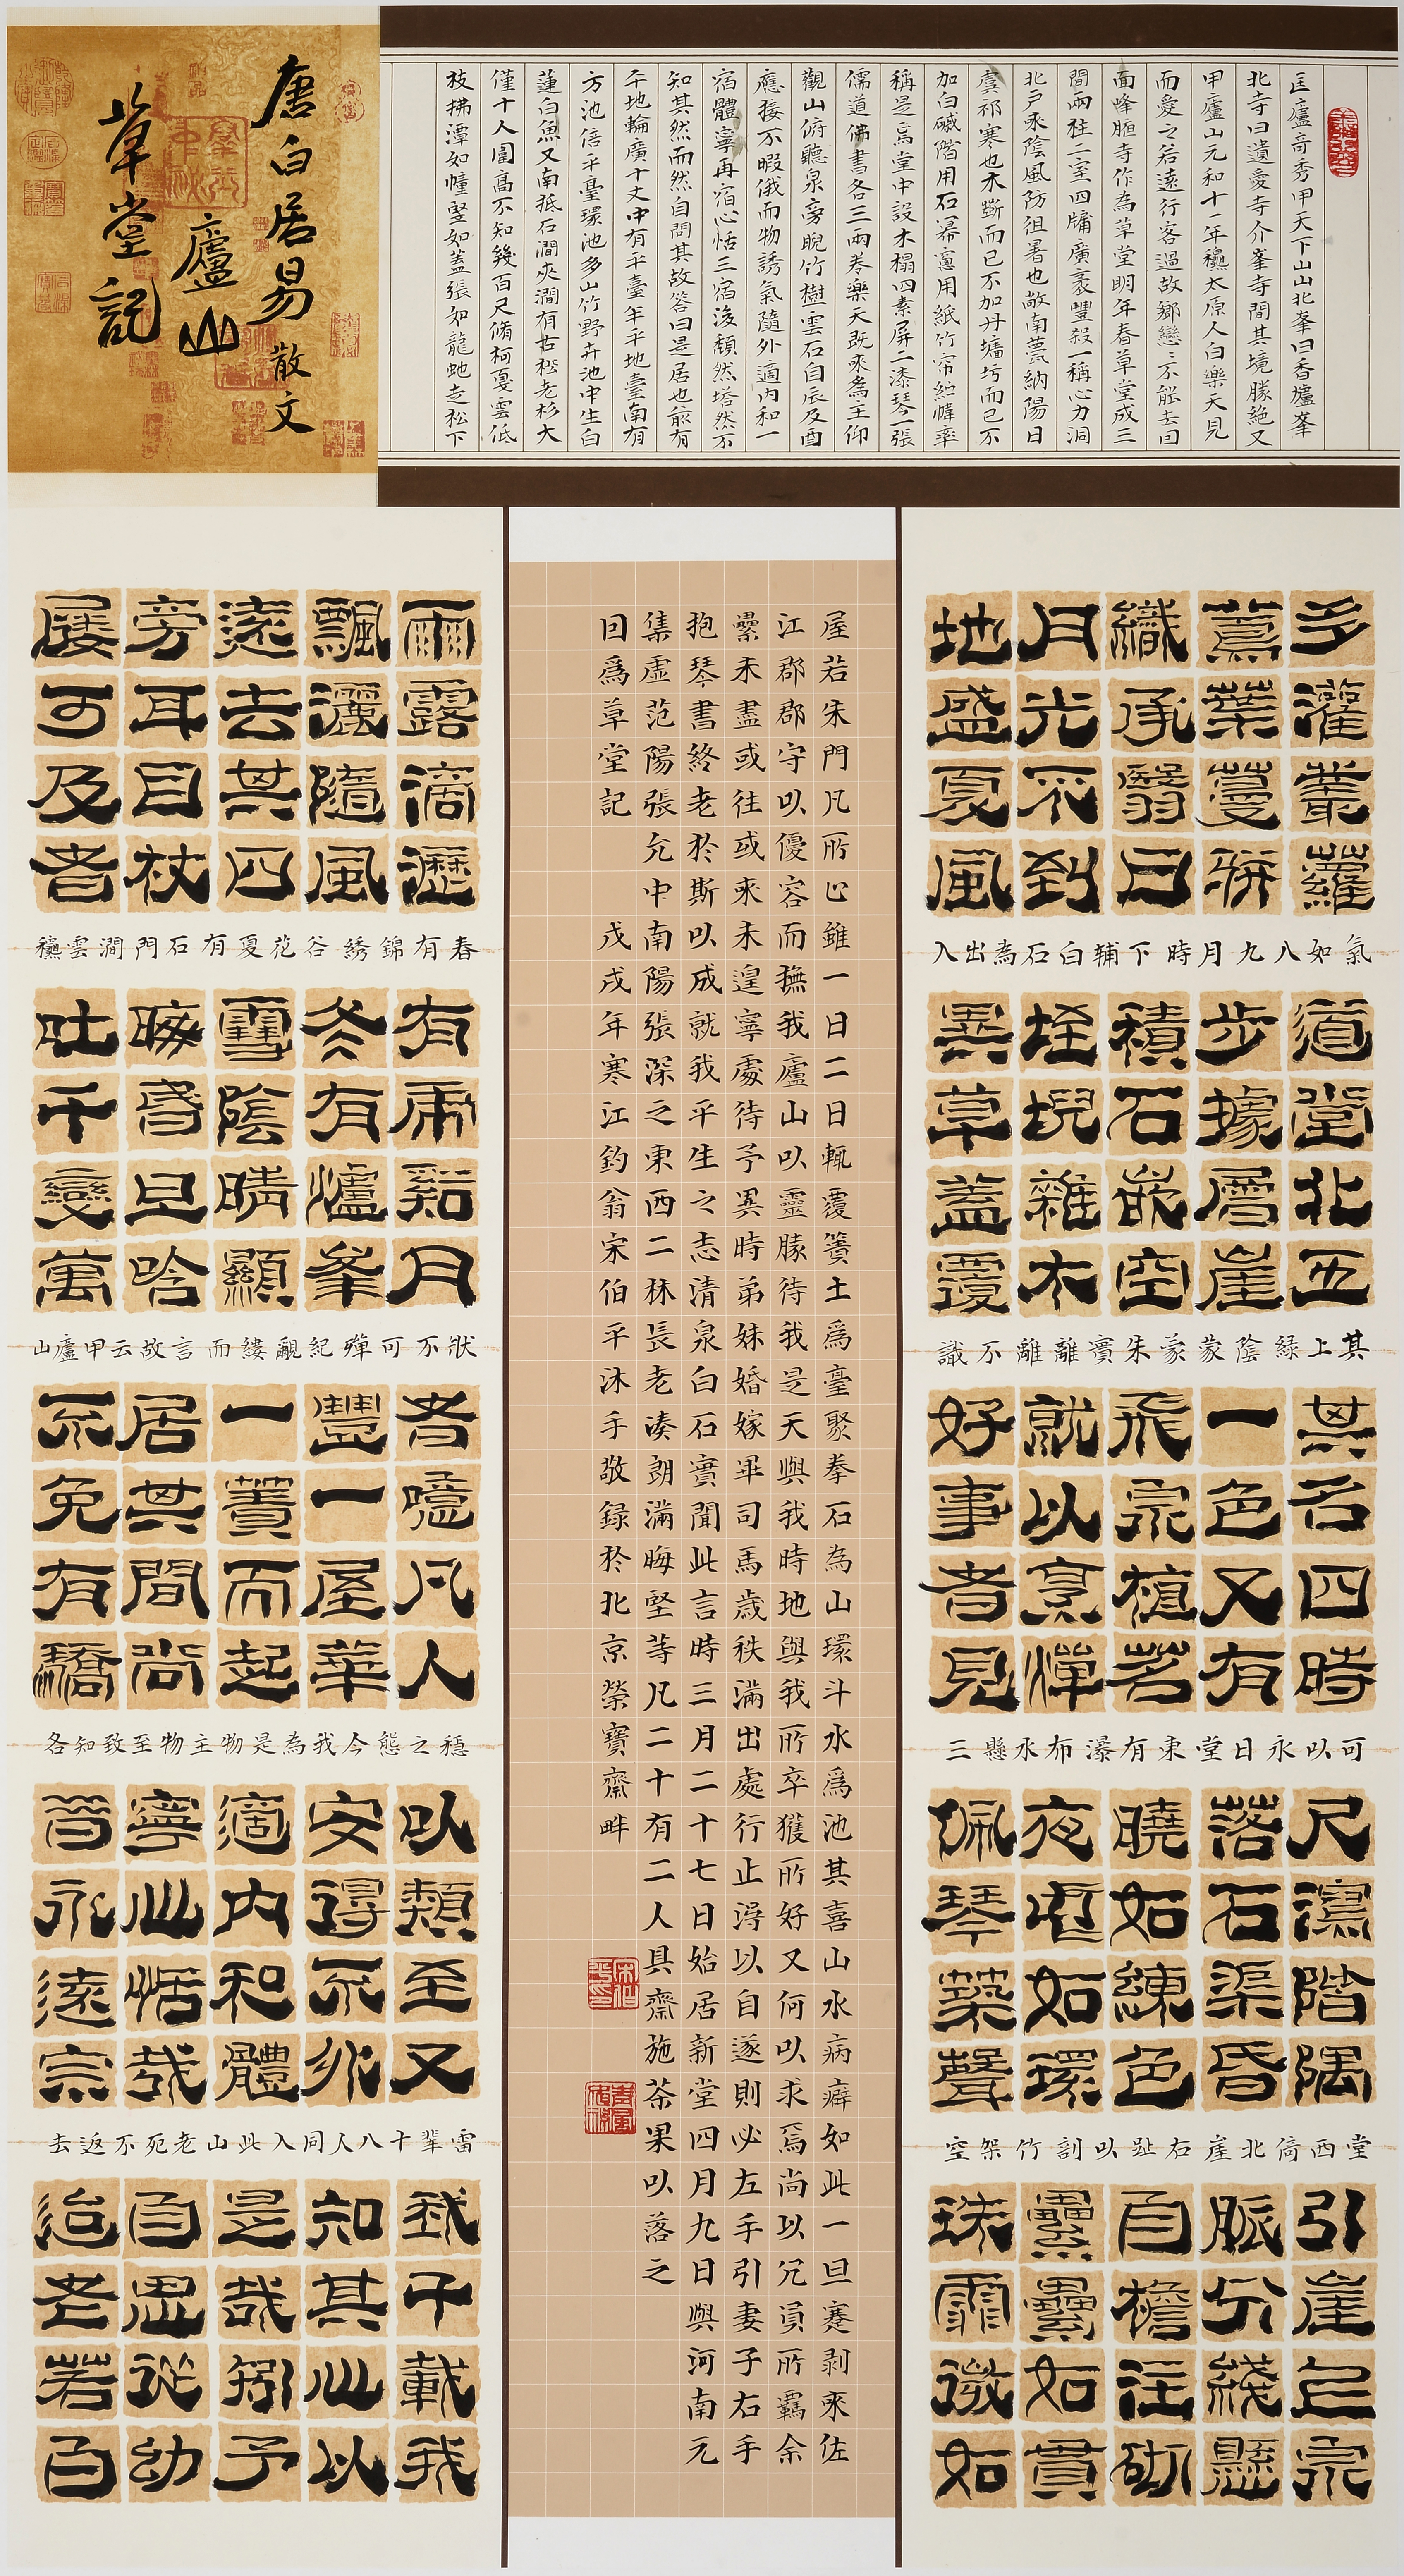 唐白居易散文
廬山
草堂記
匡廬奇秀甲天下山山北峯曰香爐峯
北寺曰遺愛寺介峯寺間其境勝絶又
甲廬山元和十一年穐太原人白樂天見
而愛之若遠行客過故鄉戀〻不能去因
面峰腋寺作為草堂明年春草堂成三
間兩柱二室四牖廣袤豐殺一稱心力洞
北戶來陰風防徂暑也敞南甍納陽日
虞祁寒也木斲而已不加丹墻圬而已不
加白磩階用石冪窻用紙竹帘紵幃率
稱是焉堂中設木榻四素屏二漆琴一張
儒道佛書各三兩卷樂天既來為主仰
觀山俯聽泉旁睨竹樹雲石自辰及酉
應接不暇俄而物誘氣隨外適內和一
宿體寧再宿心恬三宿後頹然嗒然不
知其然而然自問其故答曰是居也前有
平地輪廣十丈中有平臺半平地臺南有
方池倍平臺環池多山竹野卉池中生白
蓮白魚又南抵石澗夾澗有古松老杉大
僅十人圍高不知幾百尺脩柯戛雲低
枝拂潭如幢竪如蓋張如龍蛇走松下
多灌叢蘿
蔦葉蔓駢
織承翳日
月光不到
地盛夏風
氣如八九月時下輔白石為出入
道堂北五
步據層崖
積石嵌空
垤堄雜木
異草蓋覆
其上綠陰蒙蒙朱實離離不識
其名四時
一色又有
飛泉植茗
就以烹燀
好事者見
可以永日堂東有瀑布水懸三
尺瀉階隅
落石渠昏
曉如練色
夜中如環
佩琴築聲
堂西倚北崖右趾以剖竹架空
引崖上泉
脈分綫懸
自檐注砌
纍纍如貫
珠霏微如
雨露滴瀝
飄灑隨風
遠去其四
旁耳目杖
屨可及者
春有錦綉谷花夏有石門澗雲穐
有虎谿月
冬有爐峯
雪陰晴顯
晦昏旦含
吐千變萬
狀不可殫紀覼縷而言故云甲廬山
者噫凡人
豐一屋華
一簀而起
居其間尚
不免有驕
穩之態今我為是物主物至致知各
以類至又
安得不外
適內和體
寧心恬哉
昔永遠宗
雷輩十八人同入此山老死不返去
我千載我
知其心以
是哉矧予
自思從幼
迨老若白
屋若朱門凡所止雖一日二日輒覆簣土爲臺聚拳石為山環斗水爲池其喜山水病癖如此一旦蹇剥來佐
江郡郡守以優容而撫我廬山以靈勝待我是天與我時地與我所卒獲所好又何以求焉尚以冗員所羈余
纍未盡或往或來未遑寧處待予異時弟妹婚嫁畢司馬歲秩滿出處行止得以自遂則必左手引妻子右手
抱琴書終老於斯以成就我平生之志清泉白石實聞此言時三月二十七日始居新堂四月九日與河南元
集虛范陽張允中南陽張深之東西二林長老湊朗滿晦堅等凡二十有二人具齋施茶果以落之
因爲草堂記 戊戌年寒江釣翁宋伯平沐手敬録於北京榮寶齋畔